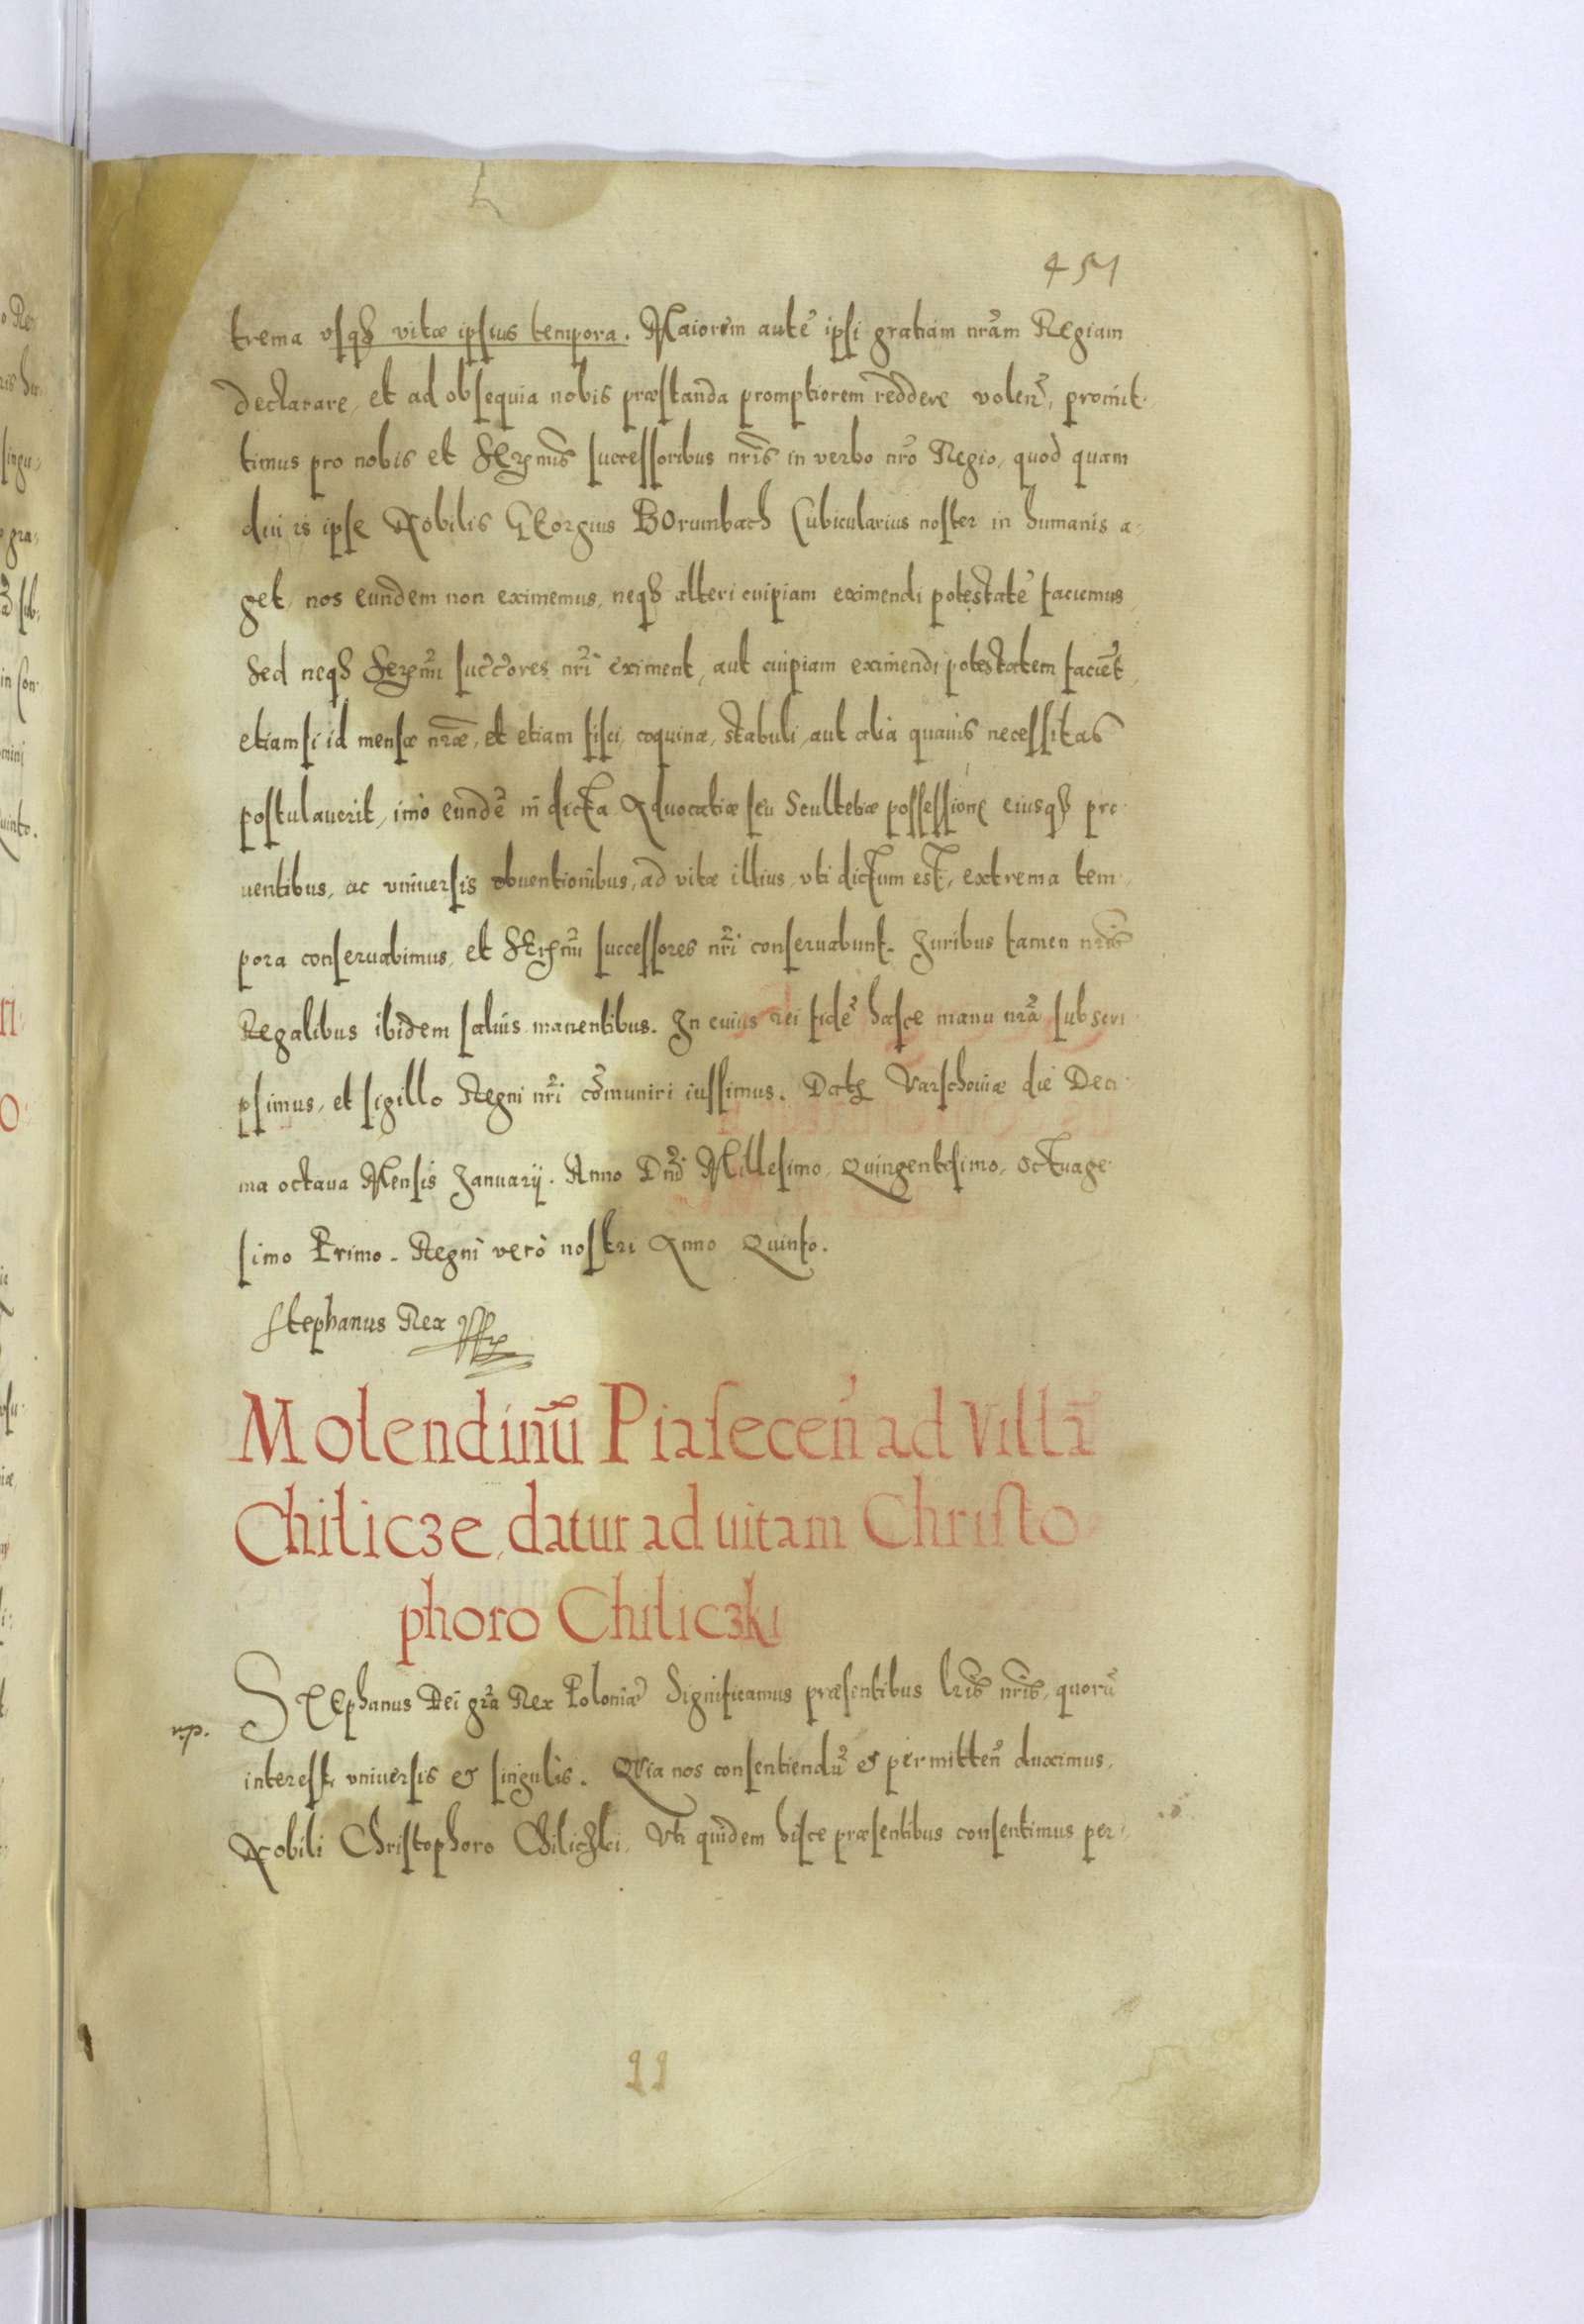 451
trema vsqȝ vitæ ipsius tempora. Maiorem autē ipsi gratiam nrām Regiam
declarare, et ad obsequia nobis præstanda promptiorem reddere volen̄, promit-
timus pro nobis et Serenmis successoribus nrīs in verbo nrō Regio, quod quam
diu is ipse Nobilis GEorgius BOrumbach Cubicularius noster in humanis a-
get, nos eundem non eximemus, neqȝ alteri cuipiam eximendi potestatē faciemus,
Sed neqȝ Serenmi succ̄ores nrī eximent, aut cuipiam eximendi potestatem faciēt,
etiamsi id mensæ nræ, et etiam fisci, coquinæ, stabuli, aut alia quauis necessitas
postulauerit, imò eundē in dicta Aduocatiæ seu Scultetiæ possessione eiusqȝ pro-
uentibus, ac vniuersis obuentionibus, ad vitæ illius, vti dictum est, extrema tem-
pora conseruabimus, et SErenmi successores nrī conseruabunt. Juribus tamen nrīs
Regalibus ibidem saluis manentibus. In cuius rei fidē hasce manu nrā subscri-
psimus, et sigillo Regni nrī cōmuniri iussimus. Datȝ Varschouiæ die Deci-
ma octaua Mensis Januarij. Anno Dnī Millesimo, Quingentesimo, Octuage-
simo Primo. Regni verò nostri Anno Quinto.
Stephanus Rex
Molendinū Piasecen̄ ad Villā
Chilicze, datur ad uitam Christo-
phoro Chiliczki
STEphanus Dei grā Rex Poloniæ Significamus præsentibus lrīs nrīs, quorū
np.
interest, vniuersis & singulis. QVia nos consentiendū & permitten̄ duximus,
Nobili Christophoro Chiliczki, Vti quidem hisce præsentibus consentimus per-